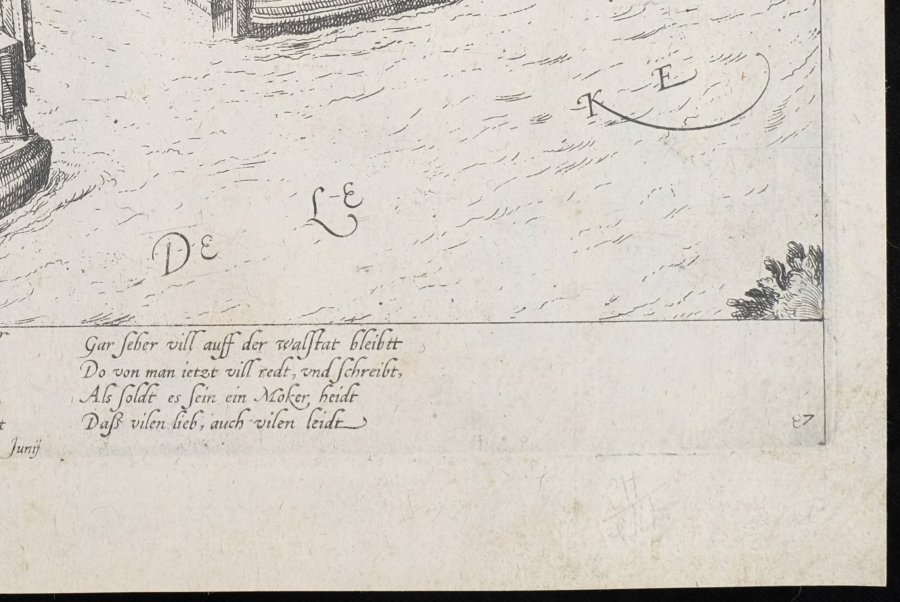 K E
DE LE
Gar seher vill auff der walstat bleibtt
Do von man ietzt vill redt, vnd schreibt,
Als soldt es sein ein Moker heidt
Daß vilen lieb, auch vilen leidt
Junij
87